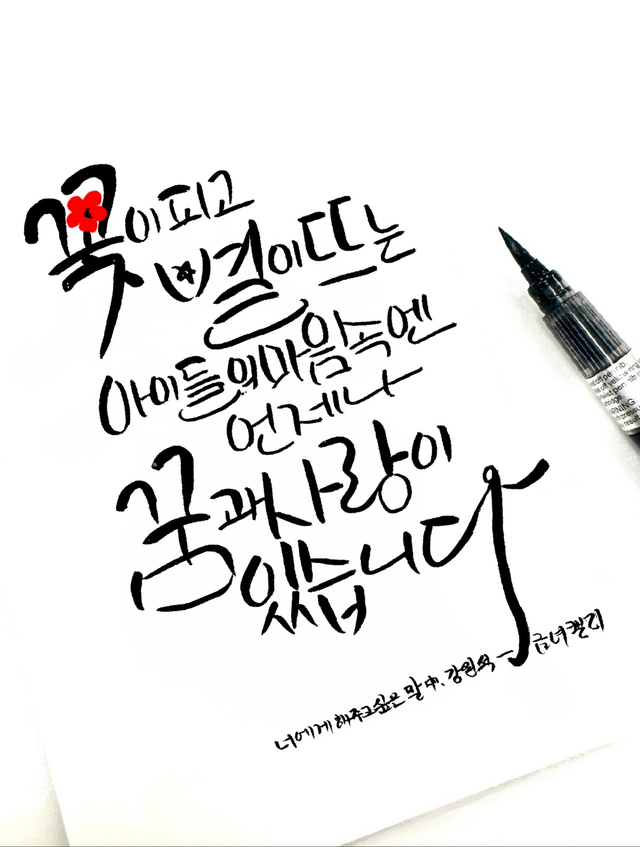 꽃이 피고
별이 뜨는
아이들의 마음속엔
언제나
꿈과 사랑이
있습니다
너에게 해주고 싶은 말 中. 강원석 - 금녀캘리